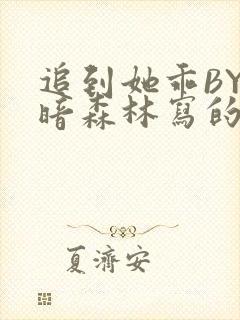 追到她乖BY
暗森林寫的
夏濟安